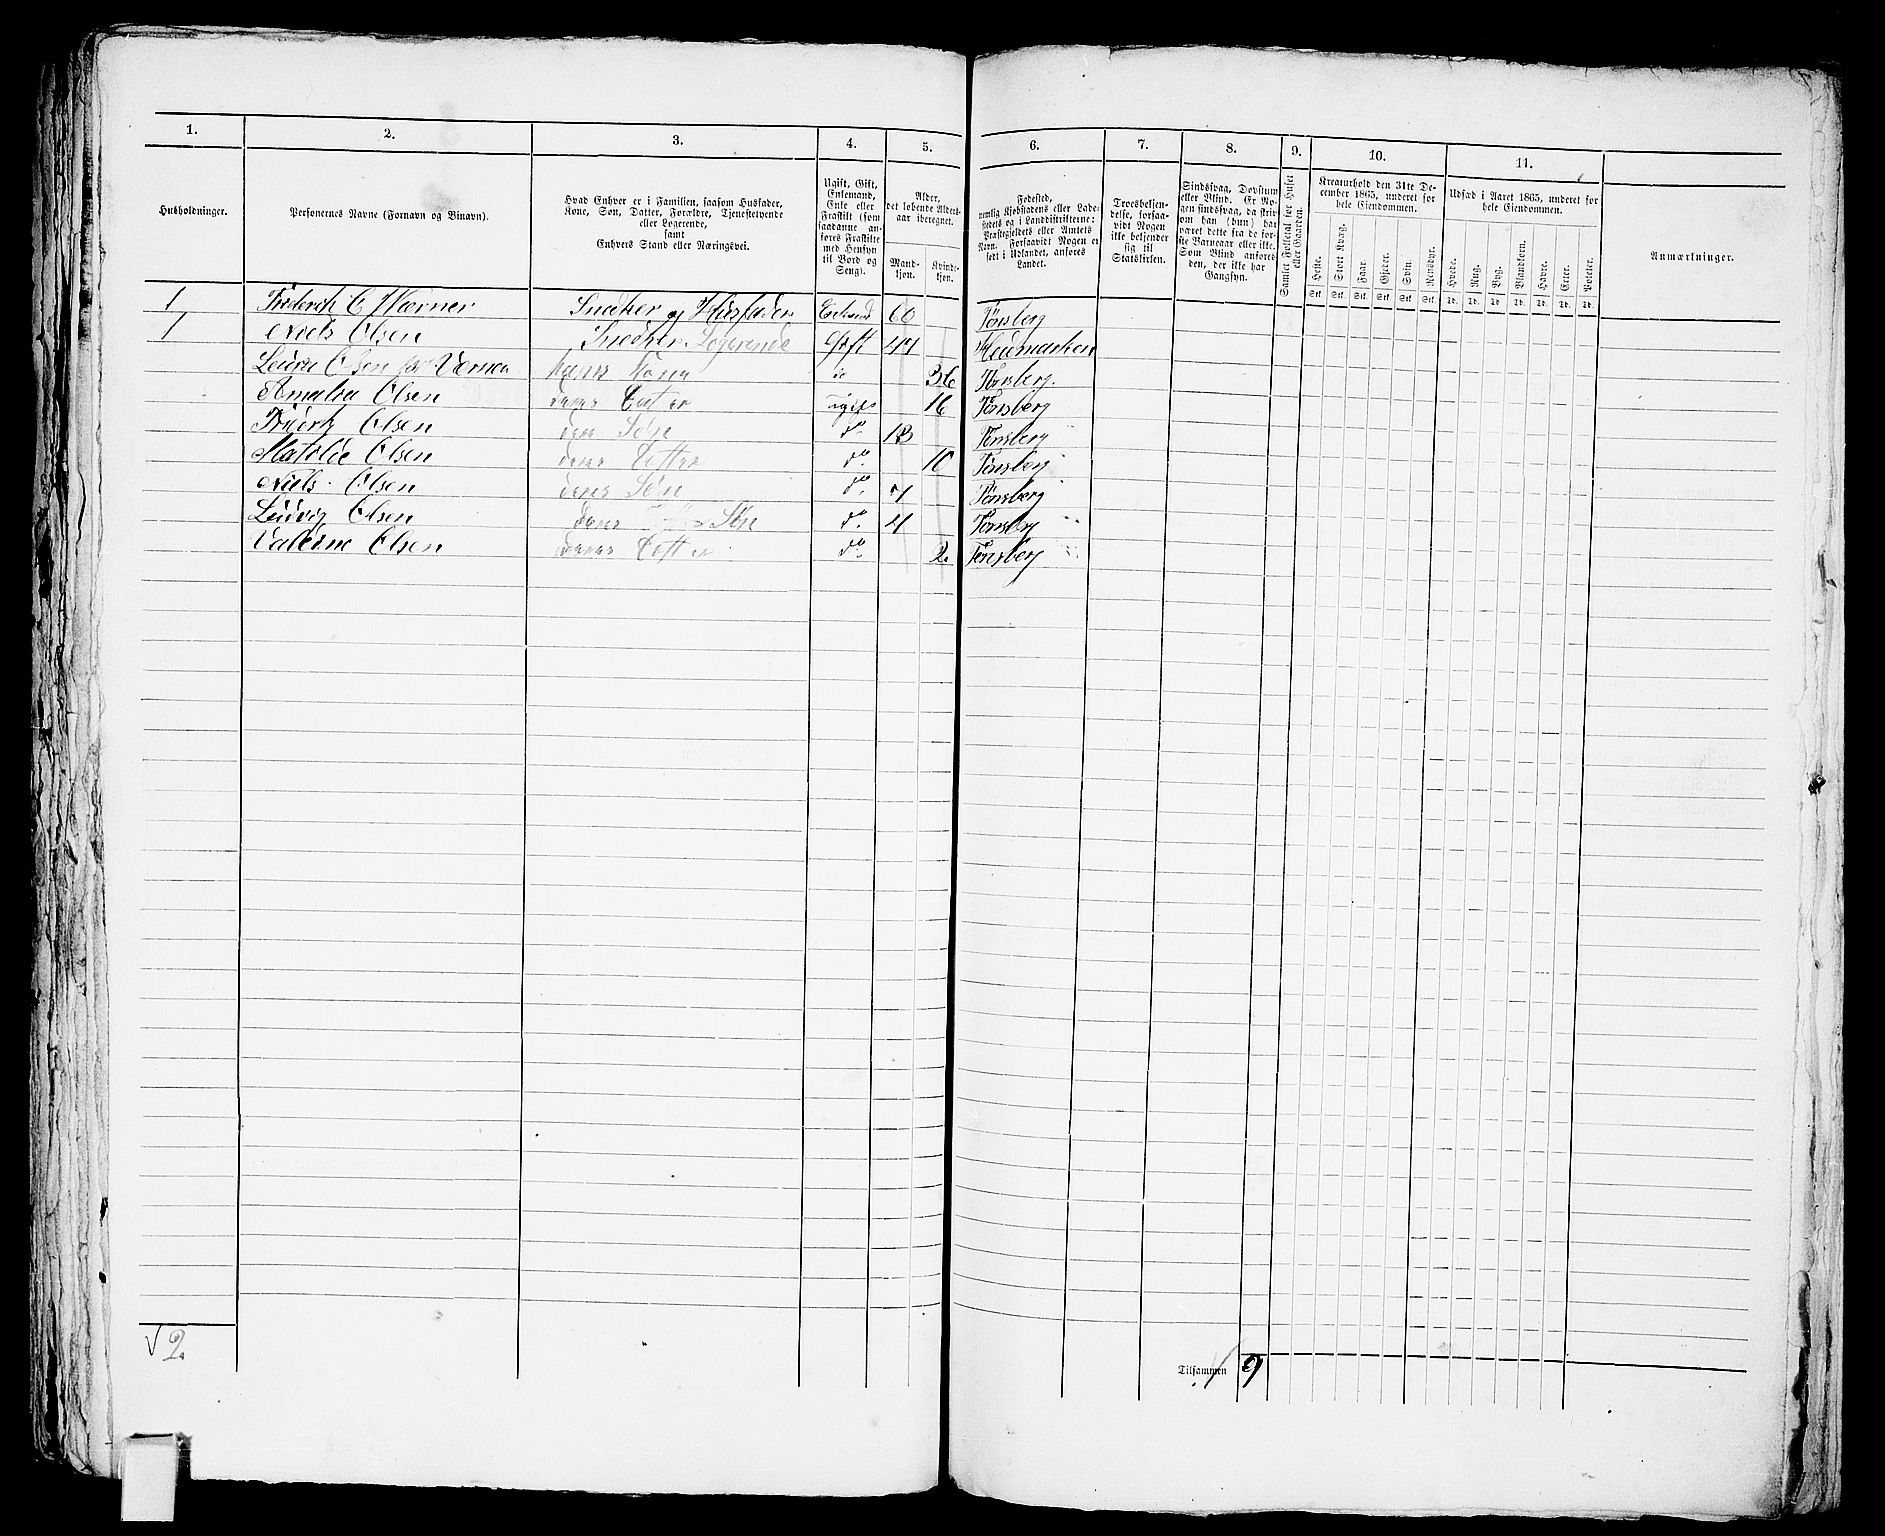 1. 2. 3. 4. 5. 6. 7. 8. 9. 10. 11.
Husholdninger.
Personernes Navne (Fornavn og Binavn).
Hvad Enhver er i Familien, saasom Husfader,
Kone, Søn, Datter, Forældre, Tjenestetyende
eller Logerende,
samt
Enhvers Stand eller Næringsvei.
Ugift, Gift,
Enkemand,
Enke eller
Fraskilt (som
saadanne an-
føres Fraskilte
med Hensyn
til Bord og
Seng).
Alder,
det løbende Alders-
aar iberegnet.
Mand-
kjøn.
Kvinde-
kjøn.
Fødested,
nemlig Kjøbstadens eller Lade-
stedets og i Landdistrikterne:
Præstegjeldets eller Amtets
Navn. Forsaavidt Nogen er
født i Udlandet, anføres
Landet.
Troesbekjen-
delse, forsaa-
vidt Nogen
ikke bekjender
sig til
Statskirken.
Sindssvag, Døvstum
eller Blind. Er No-
gen sindssvag, da skriv
om han (hun) har
været dette fra de før-
ste Barneaar eller ikke.
Som Blind anføres
den, der ikke har
Gangsyn.
Samlet Folketal for Huset
eller Gaarden.
Kreaturhold den 31te De-
cember 1865, underet for
hele Eiendommen.
Heste. Stort Kvæg. Faar. Gjeder. Svin. Rensdyr.
Stk. Stk. Stk. Stk. Stk. Stk.
Udsæd i Aaret 1865, underet for
hele Eiendommen.
Hvede. Rug. Byg. Blandkorn. Havre. Erter. Poteter.
Td. Td. Td. Td. Td. Td. Td.
Anmærkninger.
1 Frederik C Værner Snedker og Husfader Enkemd 60 Tönsberg
1 Niels Olsen Snedker. Logerende Gift 44 Hedmarken
Olsen Værner hans Kone do 36 Tönsberg.
Amalia Olsen deres Datter ugift 16 Tönsberg
Olsen deres Søn do 13 Tönsberg
Matilde Olsen deres Datter do 10 Tönsberg
Niels Olsen deres Søn do 7 Tönsberg
Ludvig Olsen deres Søn do 4 Tönsberg
Olsen deres Datter do 2. Tönsberg
√ 2
Tilsammen 9